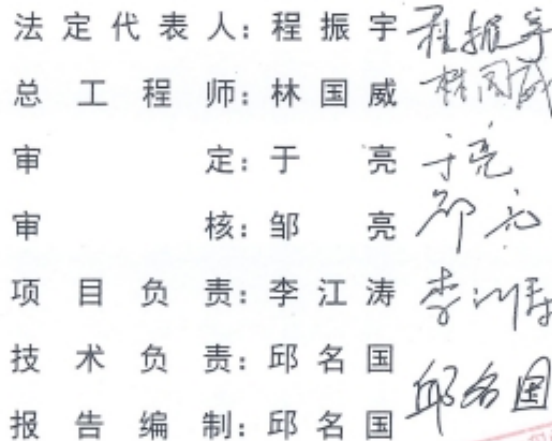 法定代表人：程振宇 程振宇
总工程师：林国威 林国威
审定：于亮 于亮
审核：邹亮 邹亮
项目负责：李江涛 李江涛
技术负责：邱名国
报告编制：邱名国 邱名国